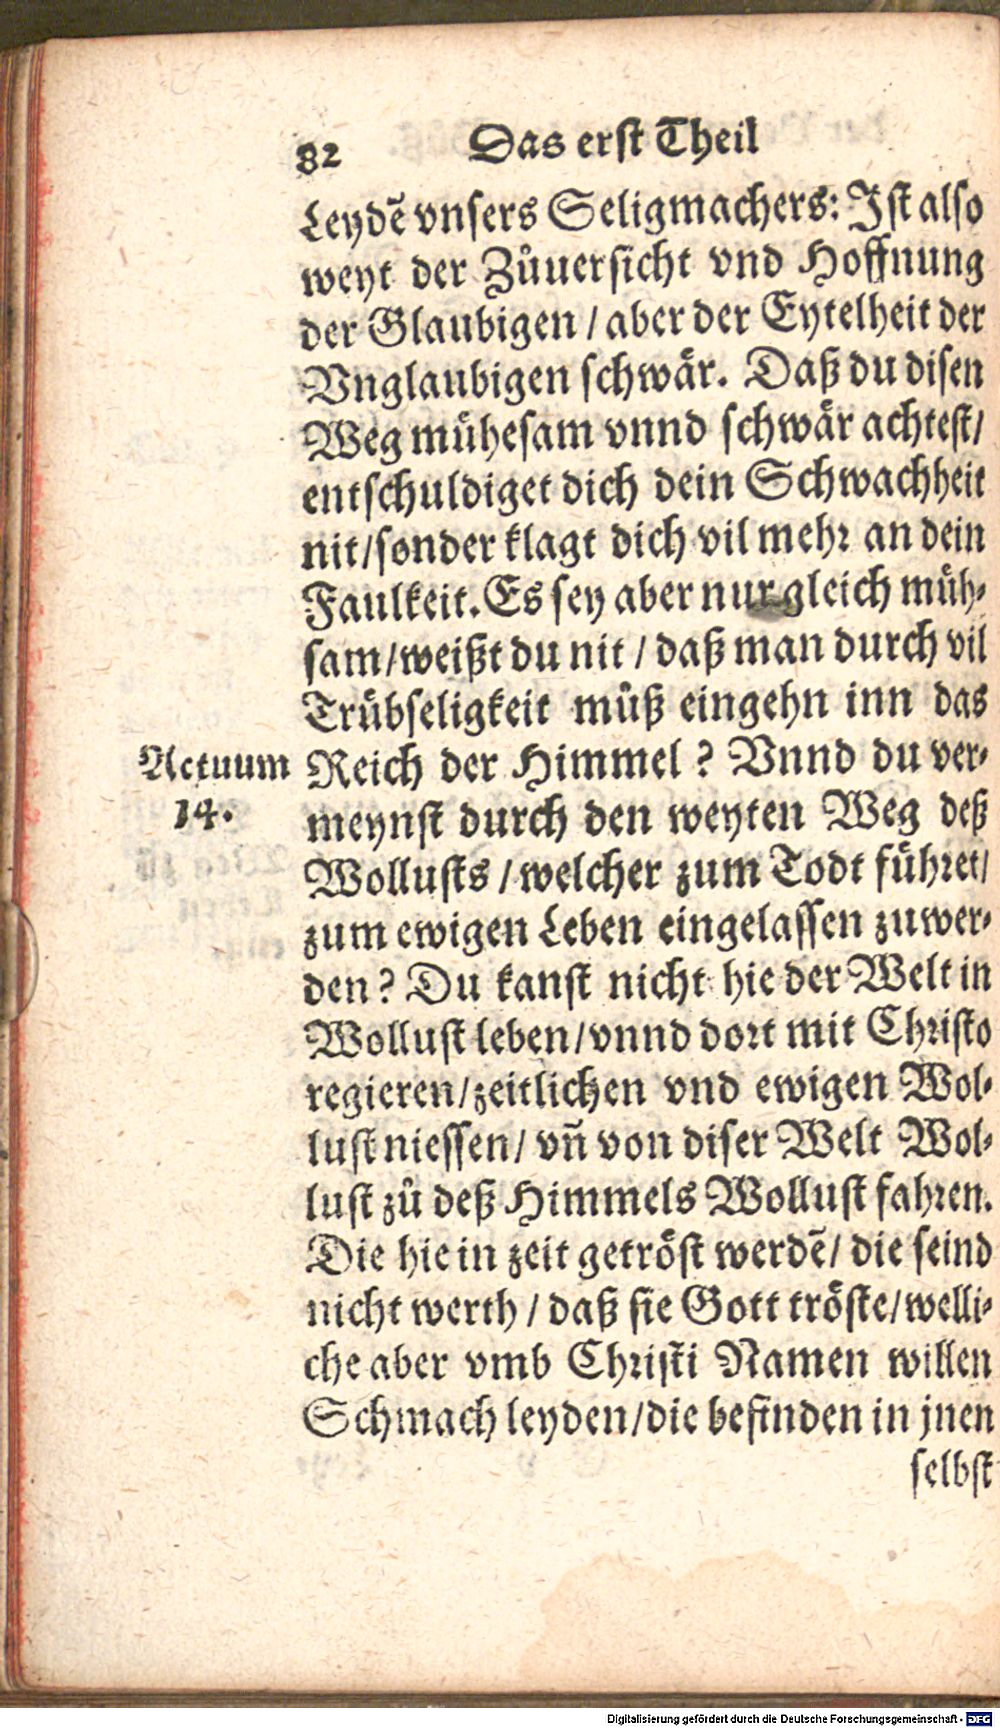 82 Das erst Theil
Leydẽ vnsers Seligmachers: Ist also
weyt der Zůuersicht vnd Hoffnung
der Glaubigen / aber der Eytelheit der
Vnglaubigen schwär. Daß du disen
Weg mühesam vnnd schwär achtest/
entschuldiget dich dein Schwachheit
nit/sonder klagt dich vil mehr an dein
Faulkeit. Es sey aber nur gleich müh-
sam/weißt du nit / daß man durch vil
Trübseligkeit můß eingehn inn das
Actuum
14.
Reich der Himmel ? Vnnd du ver-
meynst durch den weyten Weg deß
Wollusts / welcher zum Todt führet/
zum ewigen Leben eingelassen zuwer-
den? Du kanst nicht hie der Welt in
Wollust leben/vnnd dort mit Christo
regieren/zeitlichen vnd ewigen Wol-
lust niessen/ vñ von diser Welt Wol-
lust zů deß Himmels Wollust fahren.
Die hie in zeit getröst werdẽ/ die seind
nicht werth / daß sie Gott tröste/welli-
che aber vmb Christi Namen willen
Schmach leyden/die befinden in jnen
selbst
Digitalisierung gefördert durch die Deutsche Forschungsgemeinschaft - DFG